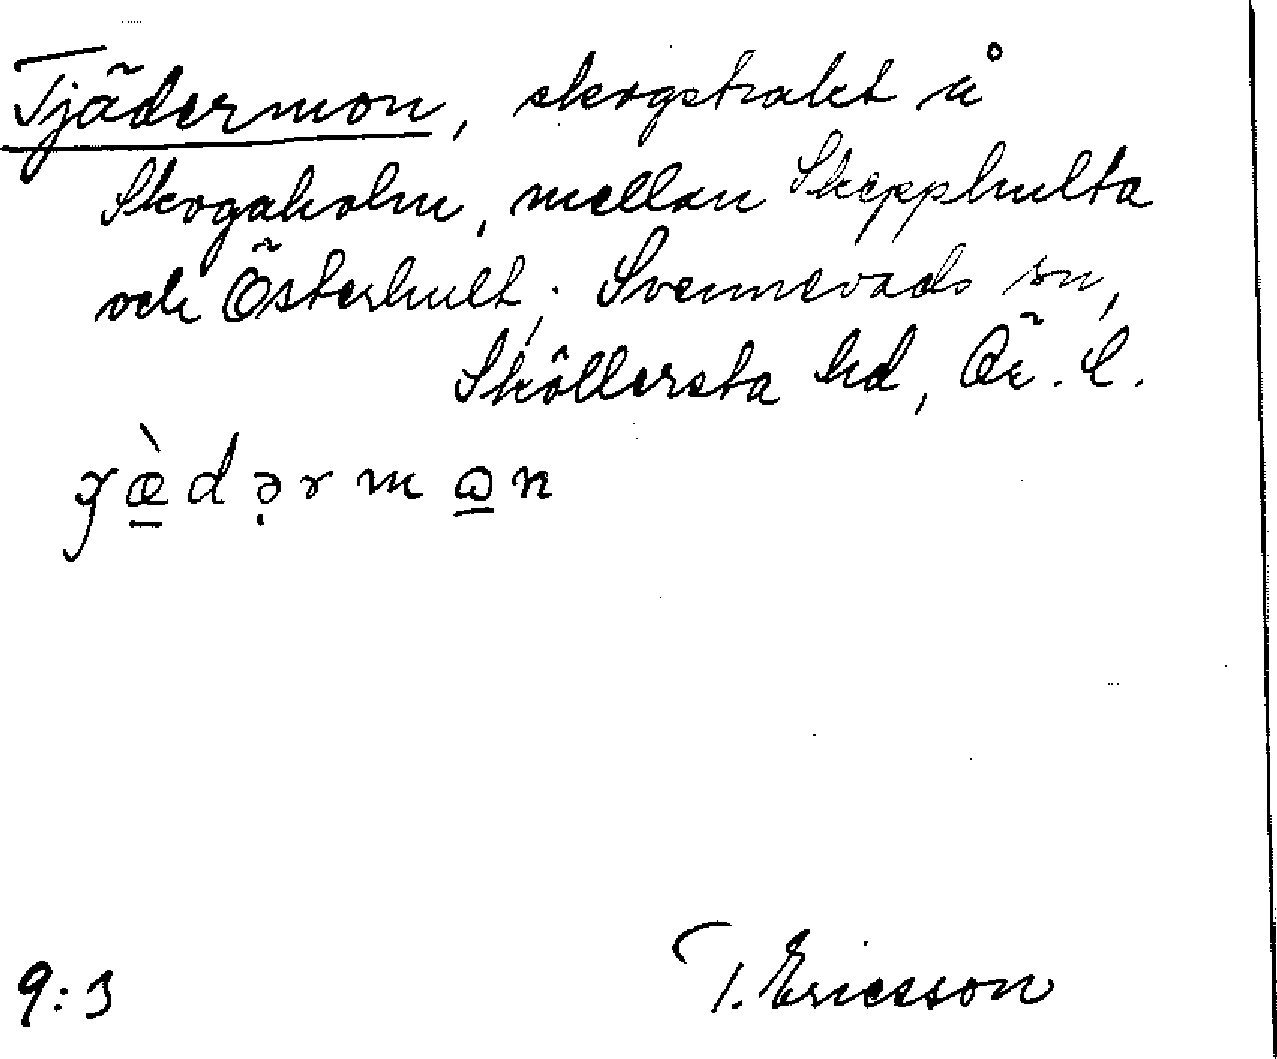 Tjädermon, skogstrakt å
Skogaholm, mellan Skepphulta
och Österhult, Svennevads sn,
Sköllersta hd, Ör. l.
9:3
T. Ericsson